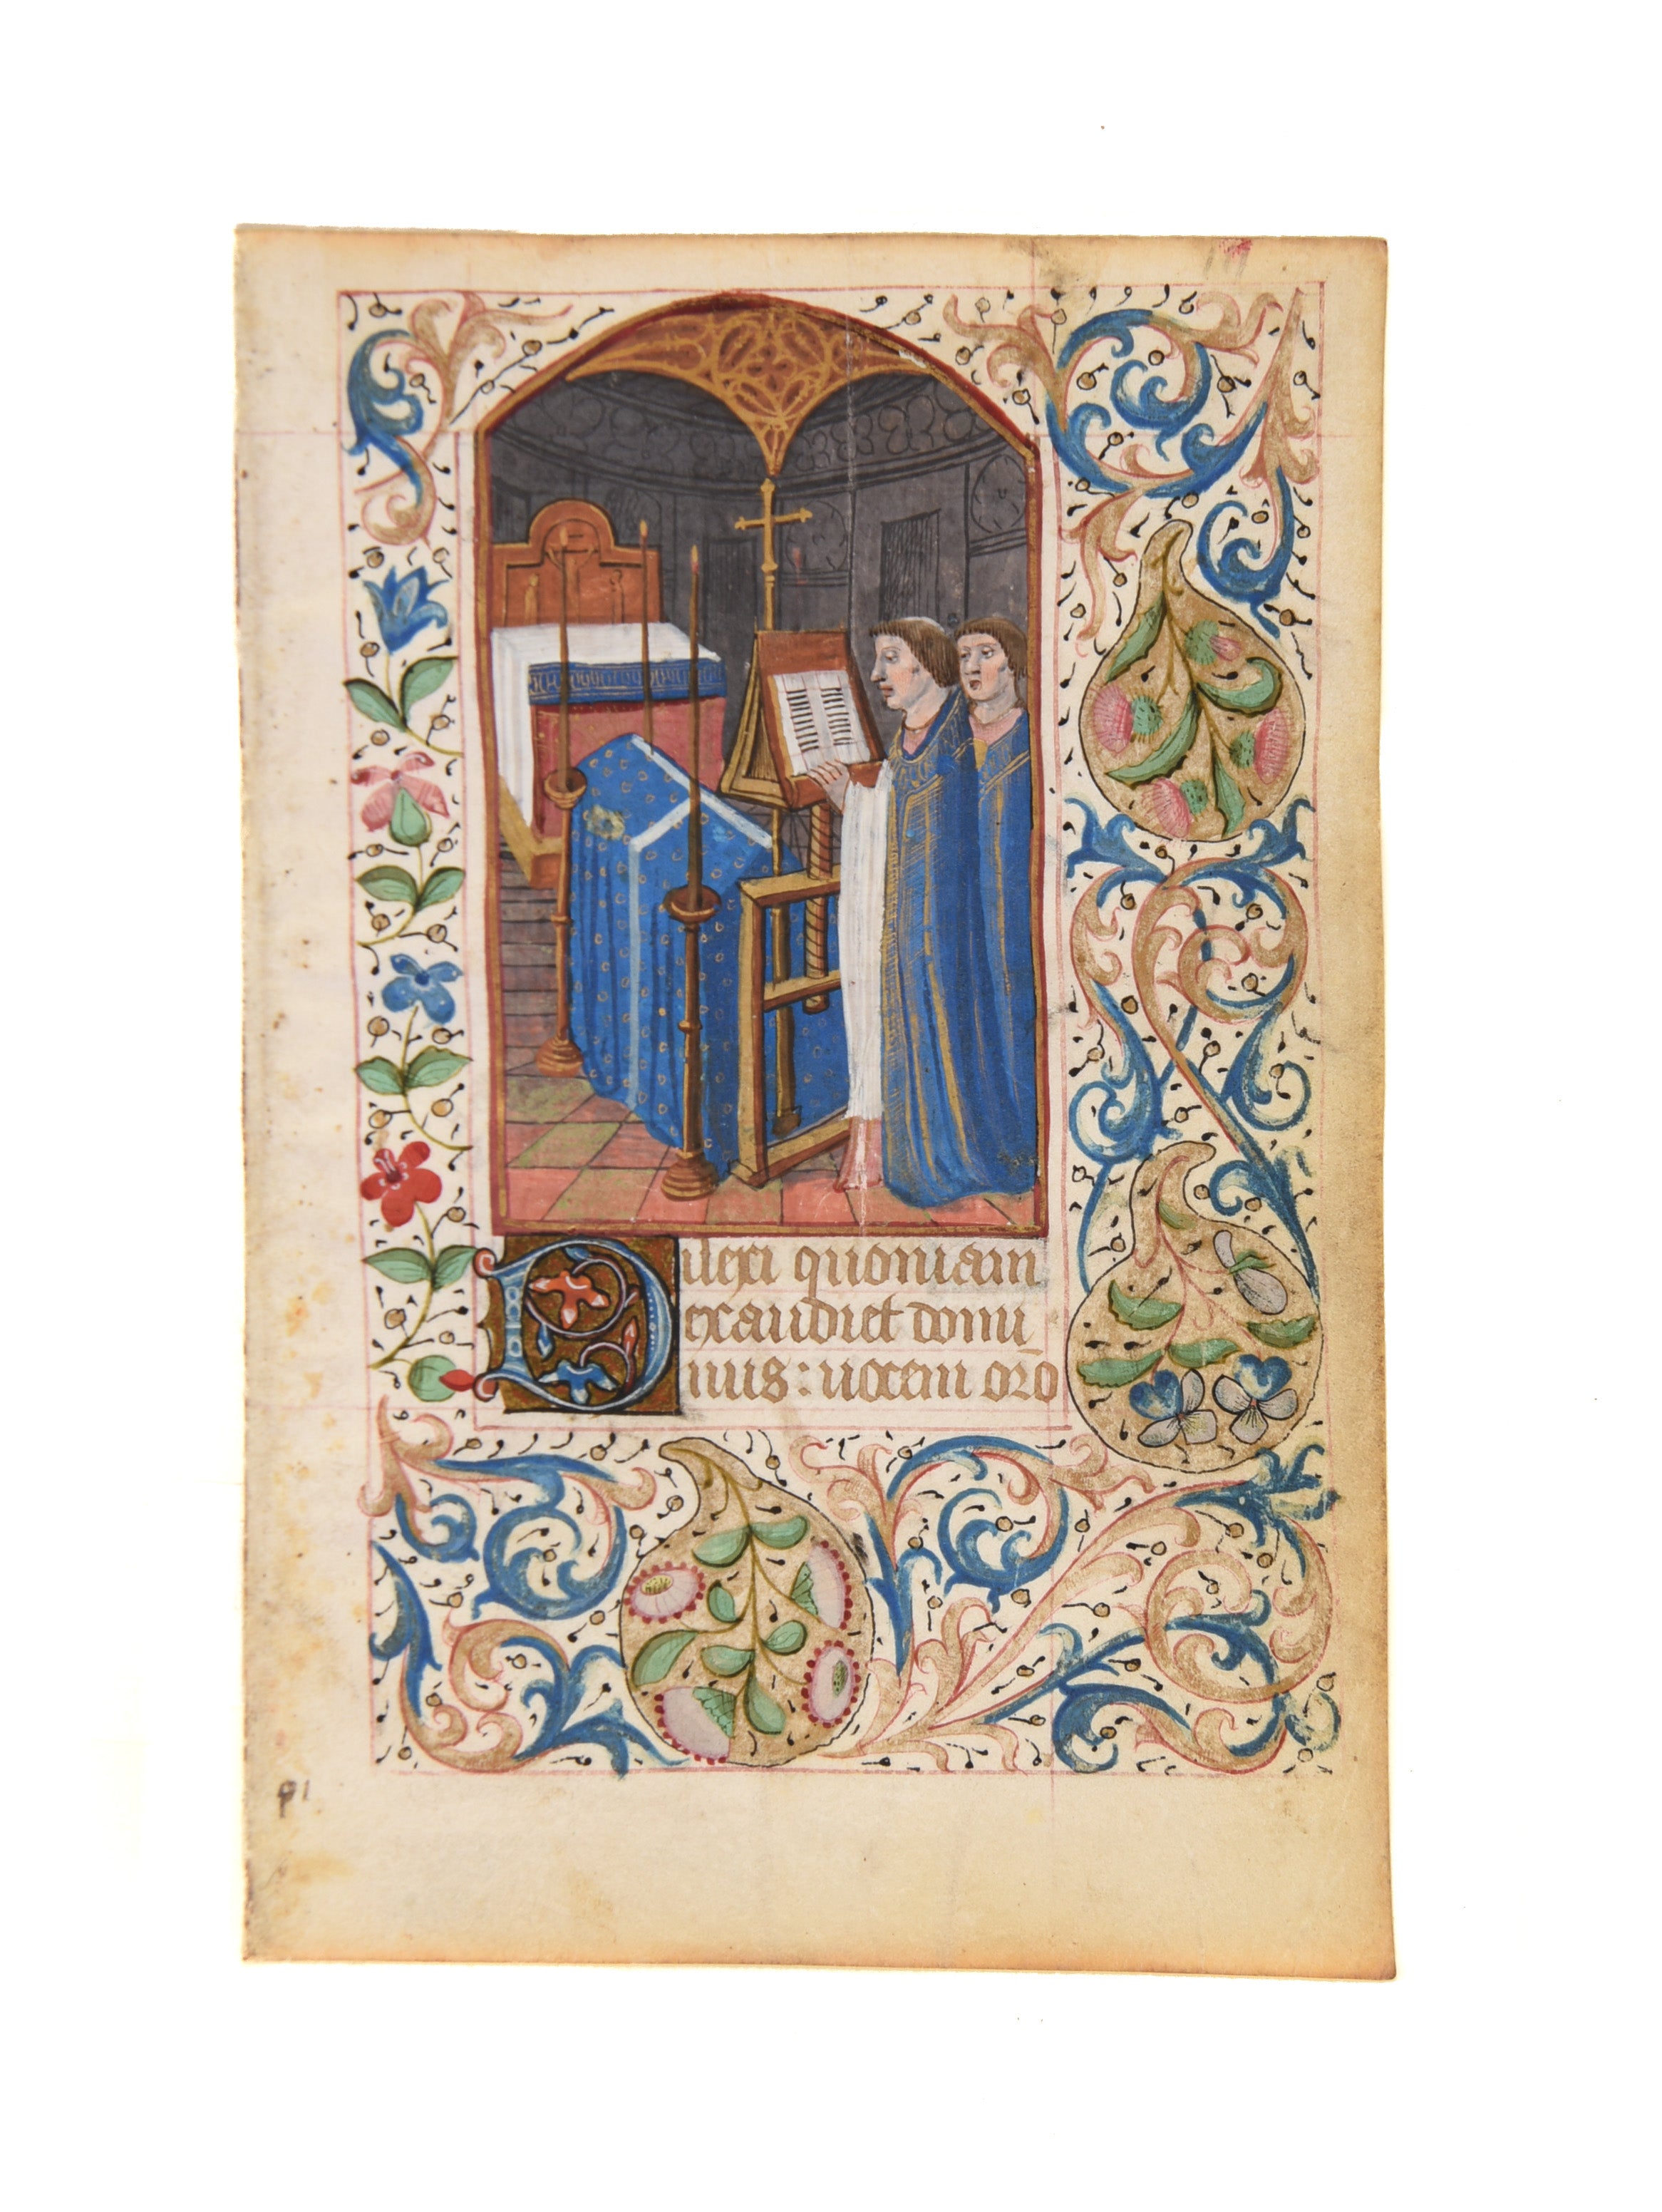 Dilexi quoniam
exaudiet domi
nus: uocem oro